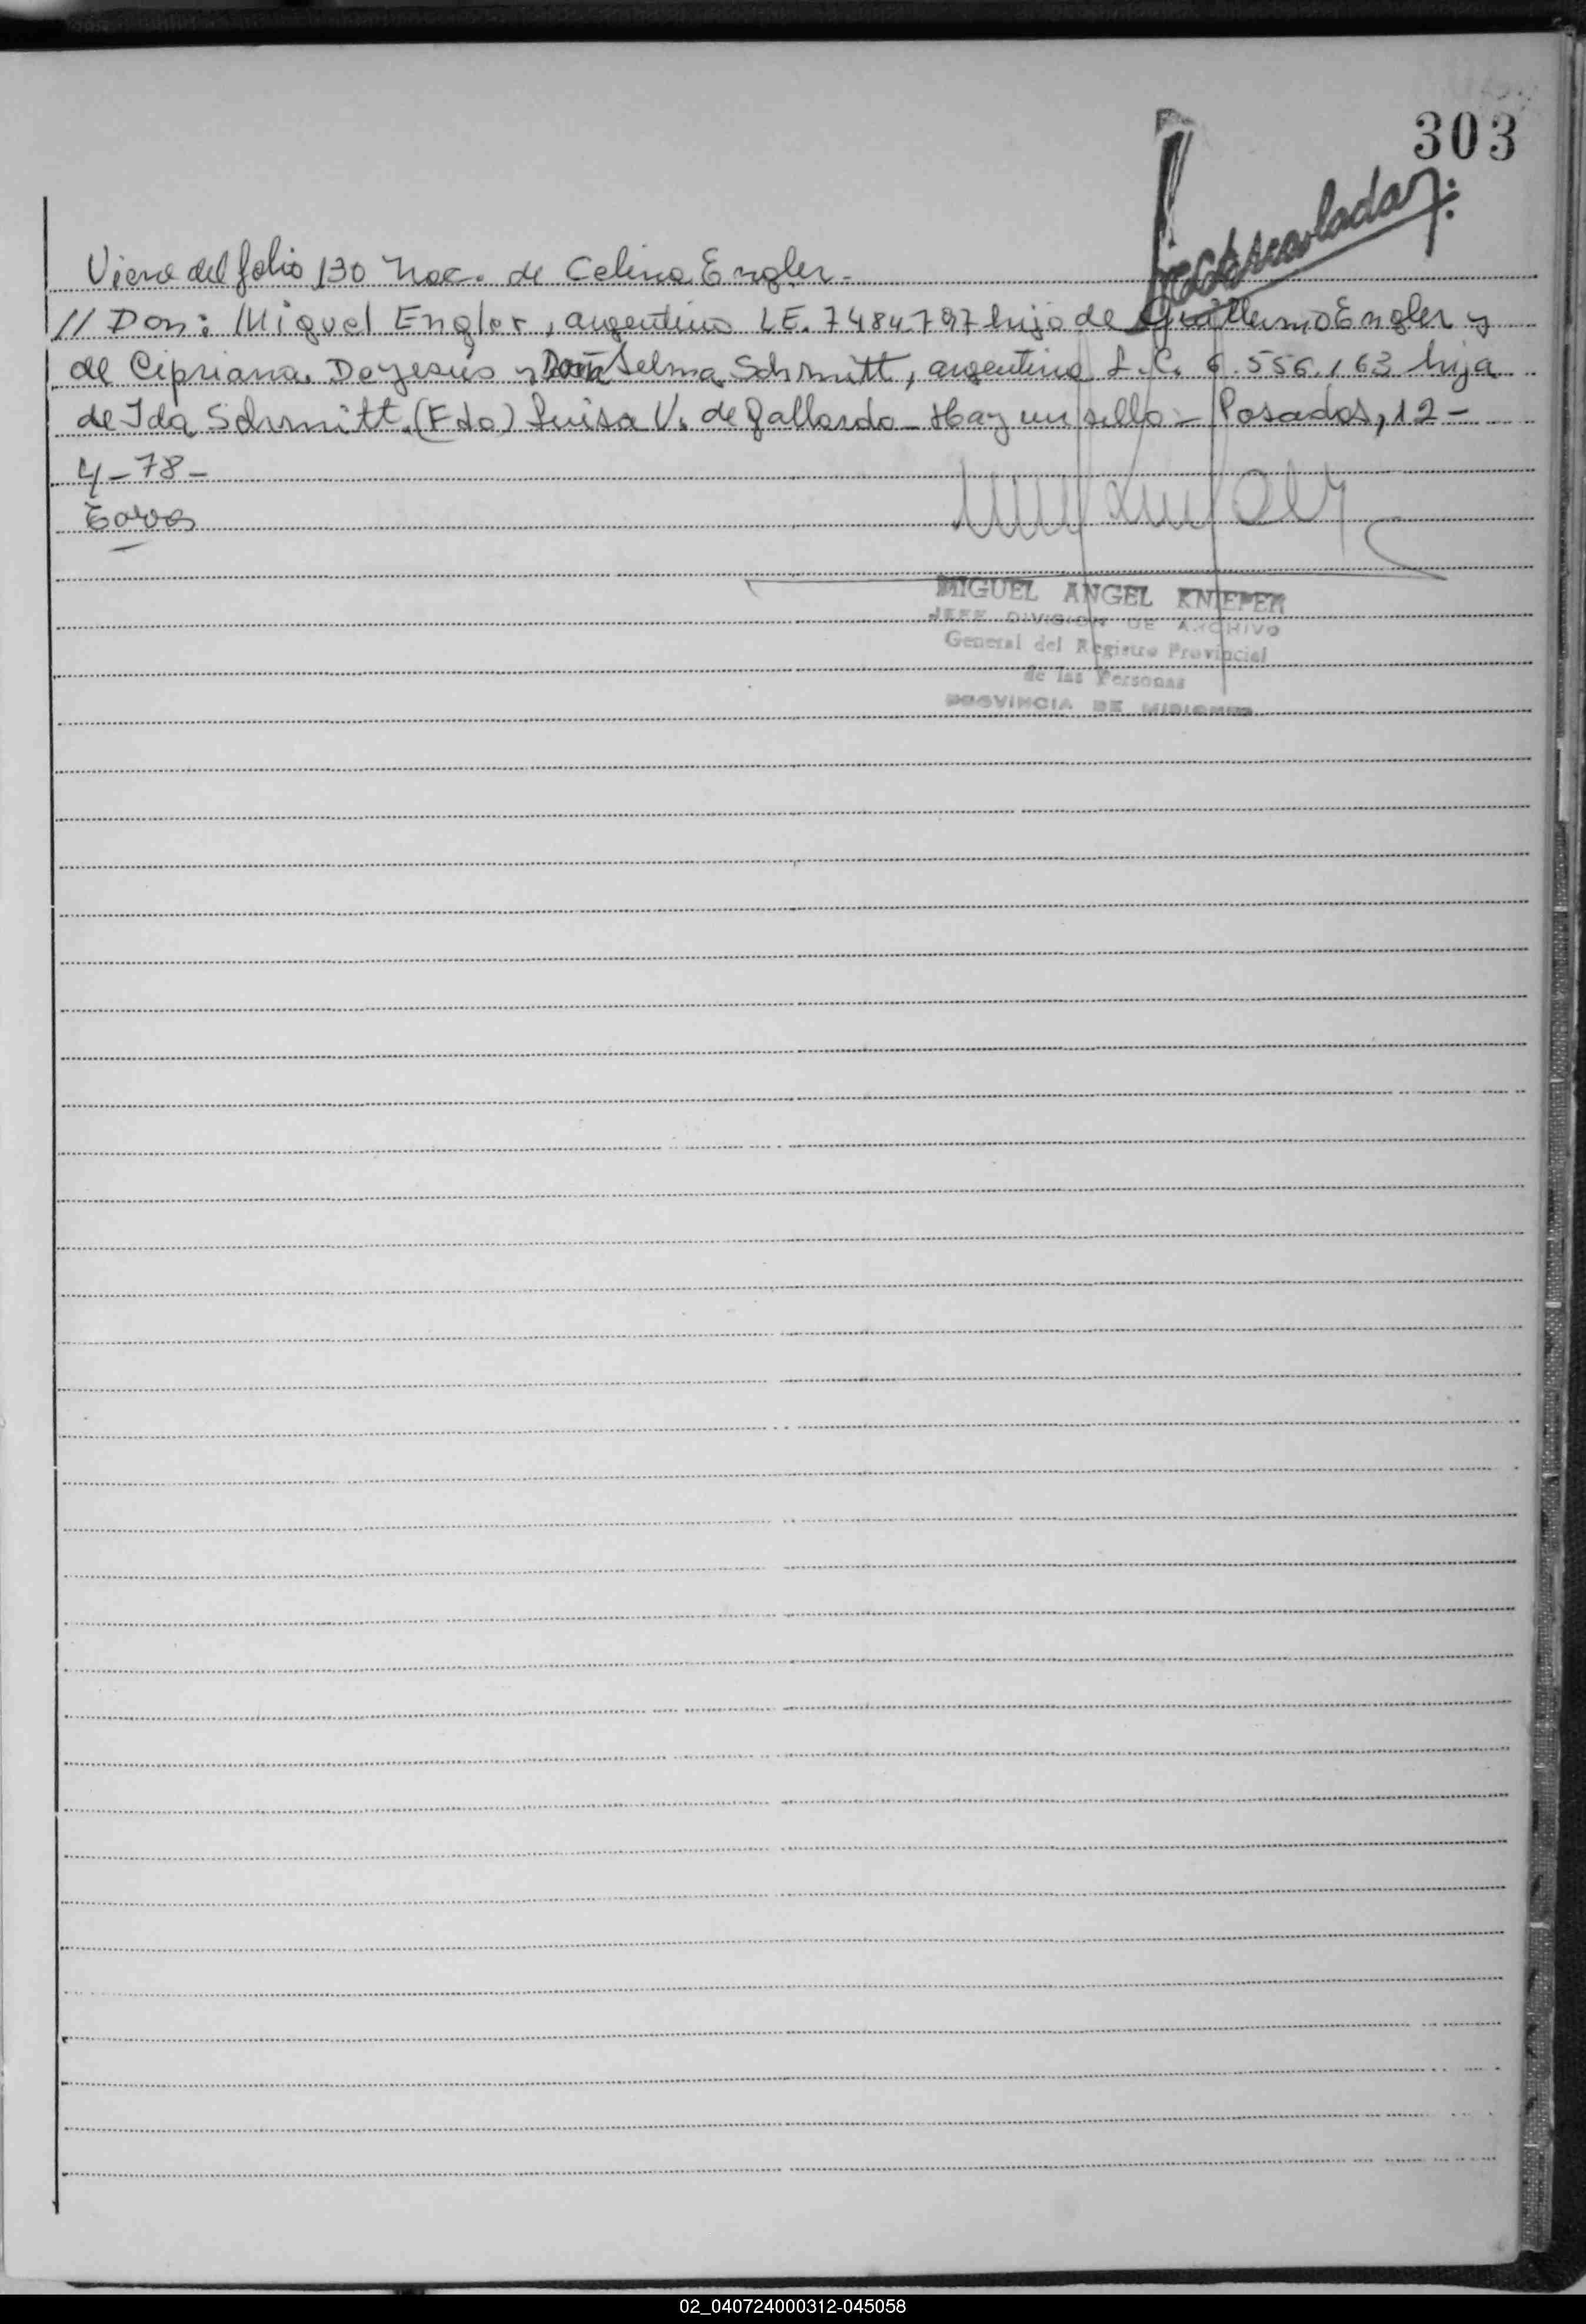 303
Viene del folio 130 Nac. de Celina Engler.-
// Don: Miguel Engler, argentino L.E. 7484797 hijo de Guillermo Engler y
de Cipriana Dejesús y Doña Selma Schmitt, argentina L.C. 6.556.163 hija
de Ida Schmitt. (Fdo) Luisa V. de Gallardo - Hay un sello - Posadas, 12-
4-78-
MIGUEL ANGEL KNIEPER
JEFE DIVISION DE ARCHIVO
General del Registro Provincial
de las Personas
PROVINCIA DE MISIONES
02_040724000312-045058